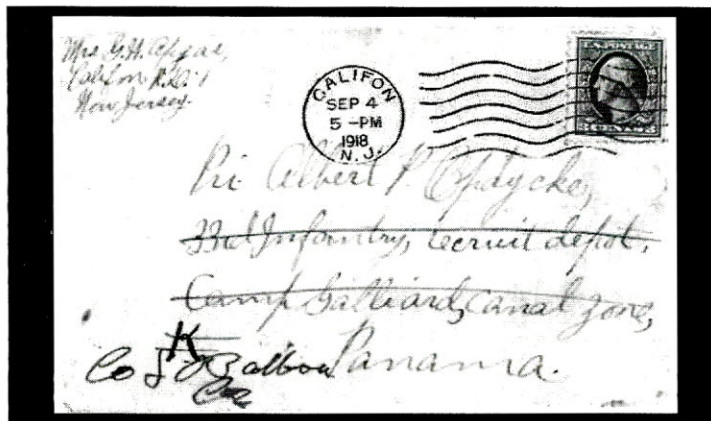 Mrs G.H. Apgar,
Califon R.D. 1
New Jersey.
CALIFON
SEP 4
5 -PM
1918
N.J.
U.S. POSTAGE
3 CENTS 3
Pri Albert P. Opdycke,
33rd Infantry, recruit depot,
Camp Galliard, canal zone,
Panama.
Co
Balboa